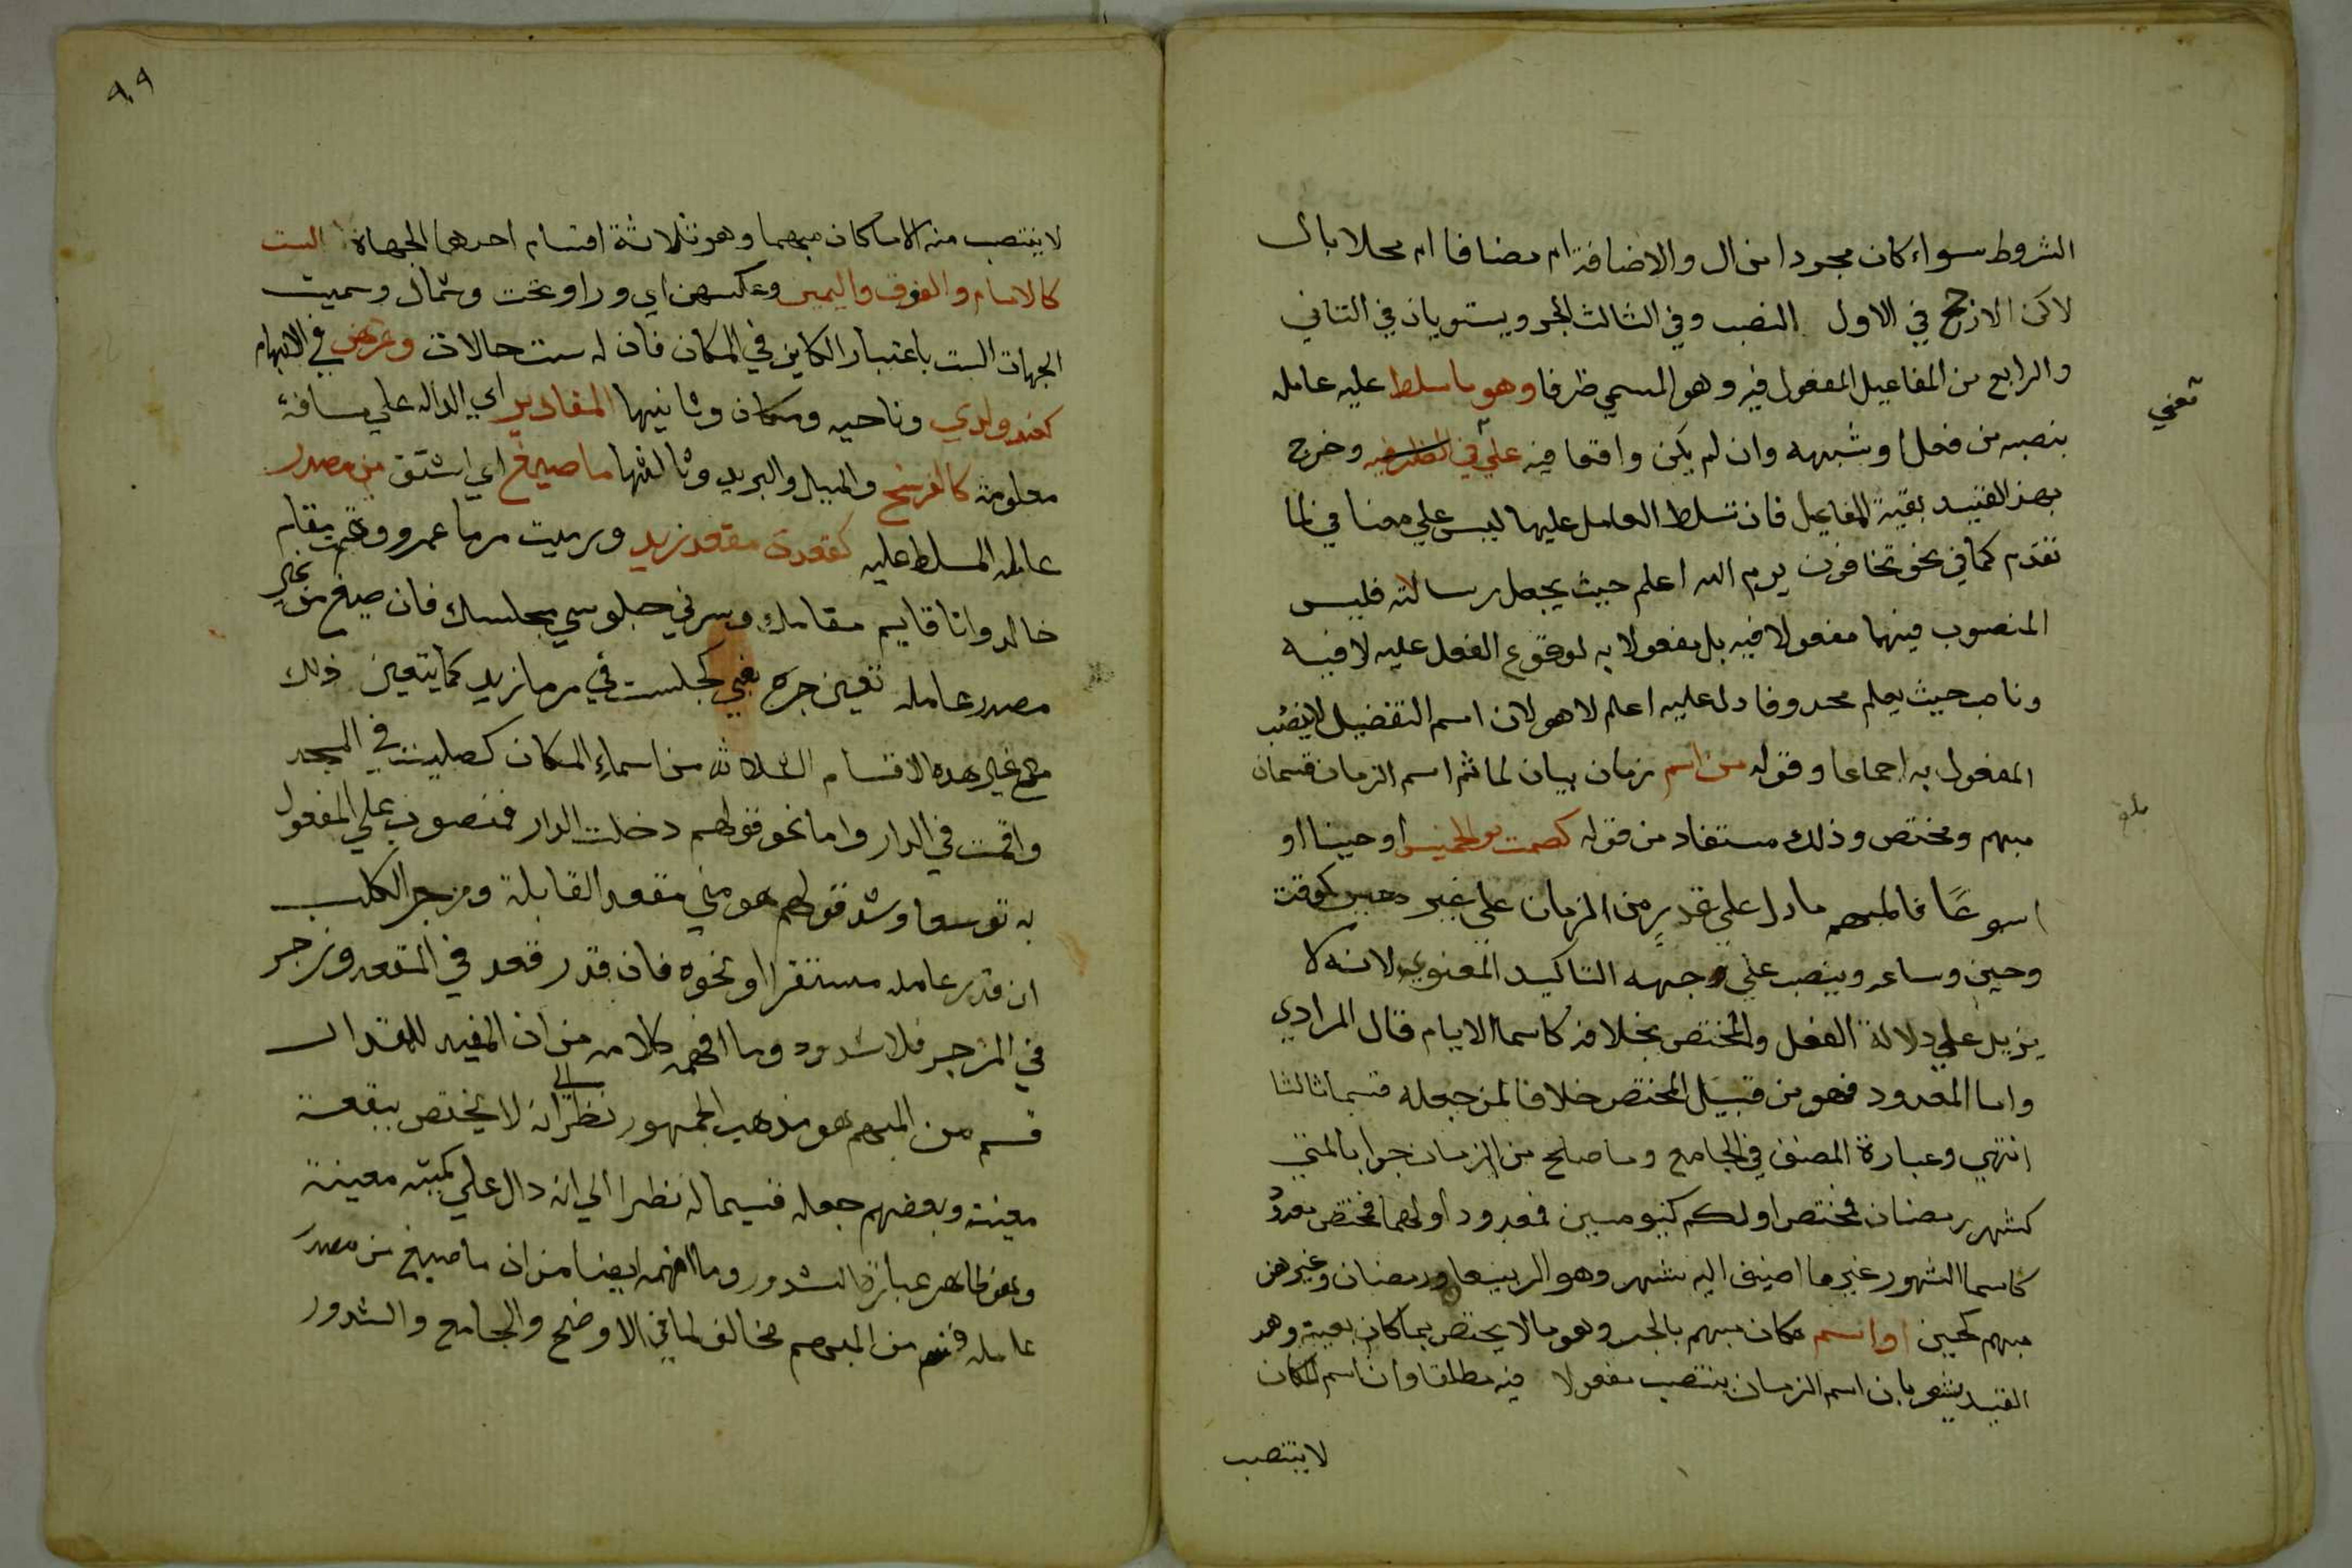 الشروط سواء كان مجردا من ال والاضافة ام مضافا ام محلا بال
لاكن الارجح في الاول النصب وفي الثالث الجر ويستويان في الثاني
والرابع من المفاعيل المفعول فيه وهو المسمي ظرفا وهو ما سلط عليه عامله
بنصبه من فعل او شبهه وان لم يكن واقعا فيه علي في الظرفيه وخرج
معني
بهذ القيد بقية المفاعيل فان تسلط العامل عليها ليس علي معنا في لما
تقدم كما في نحو تخافون يوم الله اعلم حيث يجعل رسالته فليس
المنصوب فيهما مفعولا فيه بل مفعولا به لوقوع الفعل عليه لا فيه
وناصب حيث يعلم محدوفا دل عليه اعلم لا هو لان اسم التفضيل لا ينصب
المفعول به اجماعا وقوله من اسم زمان بيان لما ثم اسم الزمان قسمان
مبهم ومختص وذلك مستفاد من قوله كصمت يوم الخميس او حينا او
اسبوعًا فالمبهم ما دل علي قدر من الزمان علي غير معين كوقت
وحين وساعه وينصب علي جهه التاكيد المعنوي لانه لا
يزيد علي دلالة الفعل والمختص بخلافه كاسما الايام قال المرادي
واما المعدود فهو من قبيل المختص خلافا لمن جعله قسما ثالثا
انتهي وعبارة المصنف في الجامع وما صلح من الزمان جوابا لمتي
كشهر رمضان فمختص او لكم كيومين فمعدود او لهما فمختص معدود
كاسما الشهور غير ما اضيف اليه شهر وهو الربيعا ورمضان وغيرهن
مبهم كحين او اسم مكان مبهم بالجر وهو ما لا يختص بمكان بعينه وهد
القيد يشعر بان اسم الزمان ينتصب مفعولا فيه مطلقا وان اسم المكان
لا ينتصب
٩٩
لا ينتصب منه الا ما كان مبهما وهو ثلاثة اقسام احدهما الجهاة الست
كالامام والفوق واليمين وعكسهن اي ورا وتحت وشمال وسميت
الجهات الست باعتبار الكاين في المكان فان له ست حالات ونحوهن في الابهام
كعند ولدي وناحيه ومكان وثانيها المقادير اي الداله علي مسافة
معلومة كالفرسخ والميل والبريد وثالثها ما صيغ اي اشتق من مصدر
عامله المسلط عليه كقعدت مقعد زيد ورميت مرما عمرو وقمت مقام
خالد وانا قايم مقامك وسرني جلوسي مجلسك فان صيغ من غير
مصدر عامله تعين جره بفي كجلست في مرما زيد كما يتعين ذلك
مع غير هده الاقسام الثلاثه من اسماء المكان كصليت في المسجد
واقمت في الدار واما نحو قولهم دخلت الدار فمنصوب علي المفعول
به توسعا وشد قولهم هو مني مقعد القابلة ومزجر الكلب
ان قدر عامله مستقرا او نحوه فان قدر قعد في المقعد وزجر
في المزجر فلا شدود وما افهمه كلامه من ان المفيد للمقدار
قسم من المبهم هو مذهب الجمهور نظرا الي انه لا يختص ببقعة
معينة وبعضهم جعله قسيما له نظرا الي انه دال علي كمية معينة
وهو ظاهر عبارة الشدور وما افهمه ايضا من ان ما صيغ من مصدر
عامله قسم من المبهم مخالف لما في الاوضح والجامع والشدور